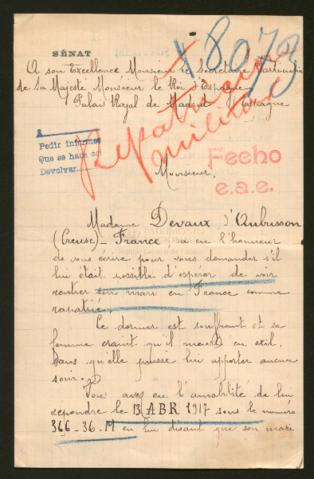 SÉNAT
18073
A son Excellence Monsieur le Secrétaire Particulier
de Sa Majesté Monsieur le Roi d'Espagne
Palais Royal de Madrid Espagne
repatriation
militaire
Pedir informes
Que se hace en
Devolver
Fecho
e.a.e.
Monsieur,
Madame Devaux d'Aubusson
(Creuse) - France a eu l'honneur
de vous écrire pour vous demander s'il
lui était possible d'espérer de voir
rentrer son mari en France comme
rapatrié
Ce dernier est souffrant et sa
femme craint qu'il meurt en exil
sans qu'elle puisse lui apporter aucun
soin.
Vous avez eu l'amabilité de lui
répondre le 13 ABR 1917 sous le numéro
366-36-M en lui disant que son mari